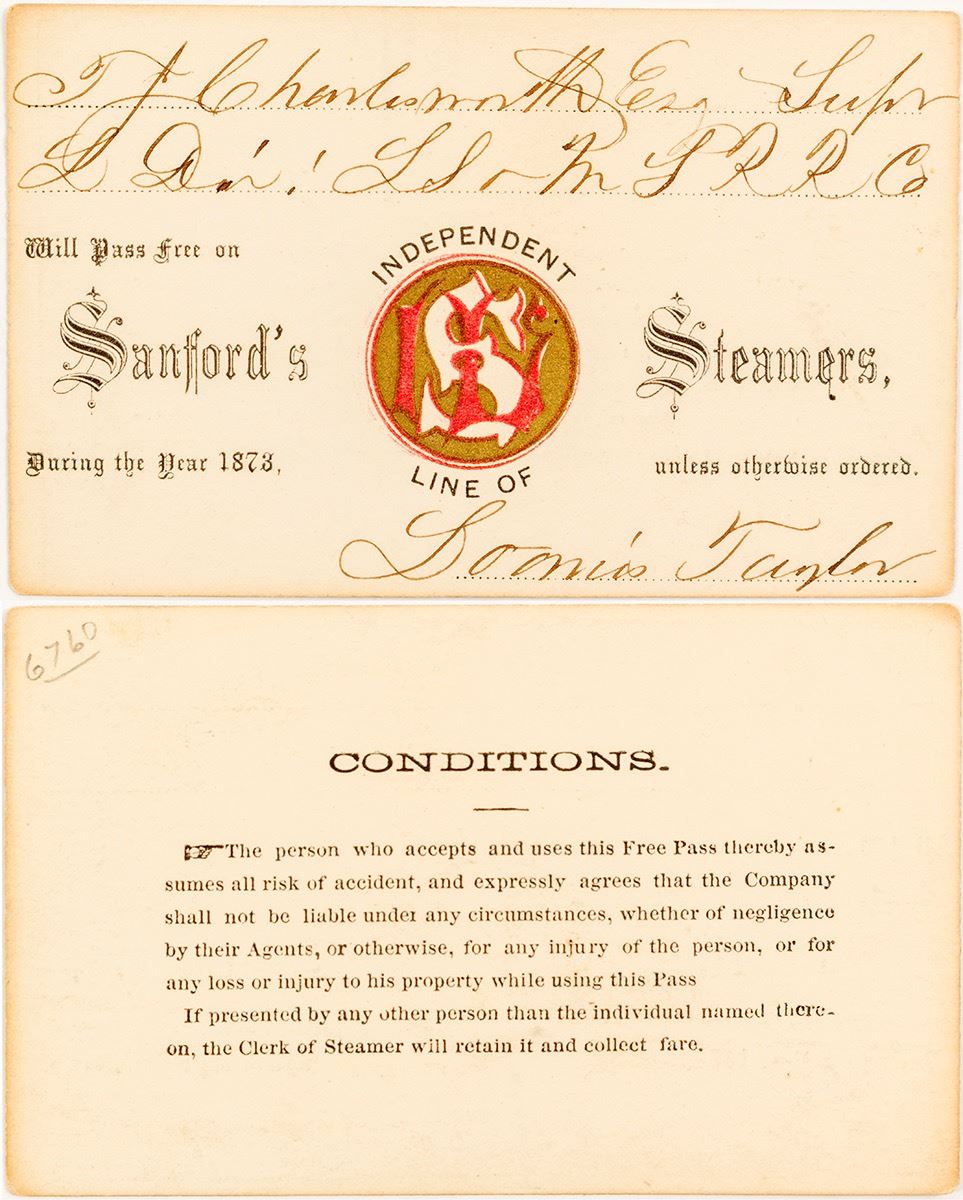 T J Charlesworth Esq Supt
L Div! L S & M S R R Co
Will Pass Free on
INDEPENDENT
Sanford's
Steamers,
During the Year 1873,
unless otherwise ordered.
LINE OF
Loomis Taylor
6760
CONDITIONS.
☞The person who accepts and uses this Free Pass thereby as-
sumes all risk of accident, and expressly agrees that the Company
shall not be liable under any circumstances, whether of negligence
by their Agents, or otherwise, for any injury of the person, or for
any loss or injury to his property while using this Pass
If presented by any other person than the individual named there-
on, the Clerk of Steamer will retain it and collect fare.